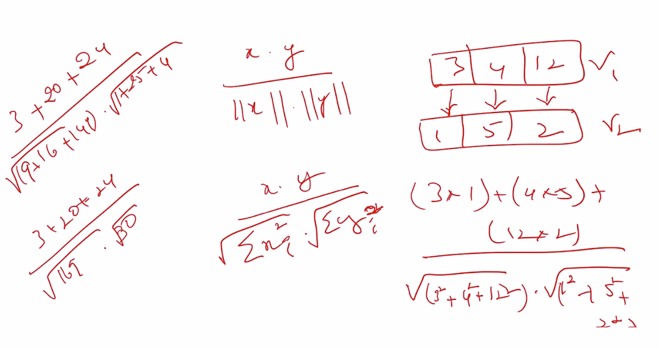 3 + 20 + 24
√(9+16+144) · √(1+25+4)
3+20+24
√169 · √30
x · y
||x|| · ||y||
x · y
√(Σx_i²) · √(Σy_i²)
3 4 12 V₁
1 5 2 V₂
(3×1)+(4×5)+
(12×2)
√(3²+4²+12²) · √(1²+5²+
2²)